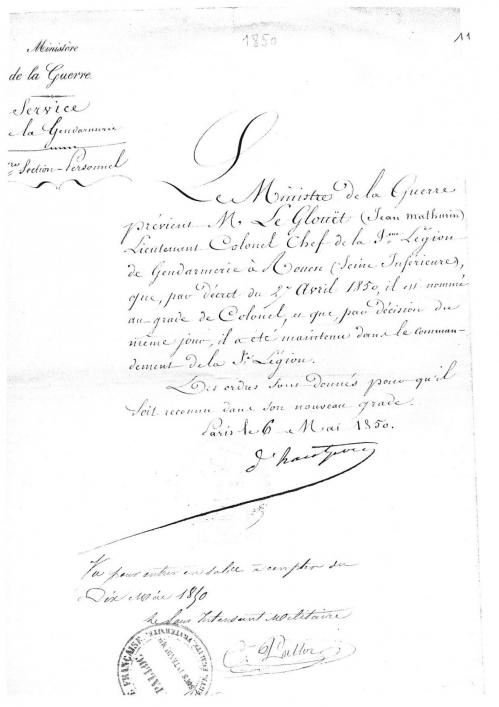 1850
11
Ministère
de la Guerre.
Service
de la Gendarmerie
Section-Personnel
Le Ministre de la Guerre
prévient M. Le Glouët (Jean Mathurin)
Lieutenant Colonel Chef de la 3eme Légion
de Gendarmerie à Rouen (Seine Inférieure),
que, par décret du 27 Avril 1850, il est nommé
au grade de Colonel, et que, par décision du
même jour, il a été maintenu dans le comman-
dement de la 3e Légion.
Des ordres sont donnés pour qu'il
soit reconnu dans son nouveau grade.
Paris le 6 Mai 1850.
d'hautpoul
Vu pour entrer en solde à compter du
Dix Mai 1850
Le Sous Intendant Militaire
Palloc
FRANÇAISE
PALLOC
SOUS INTENDANT